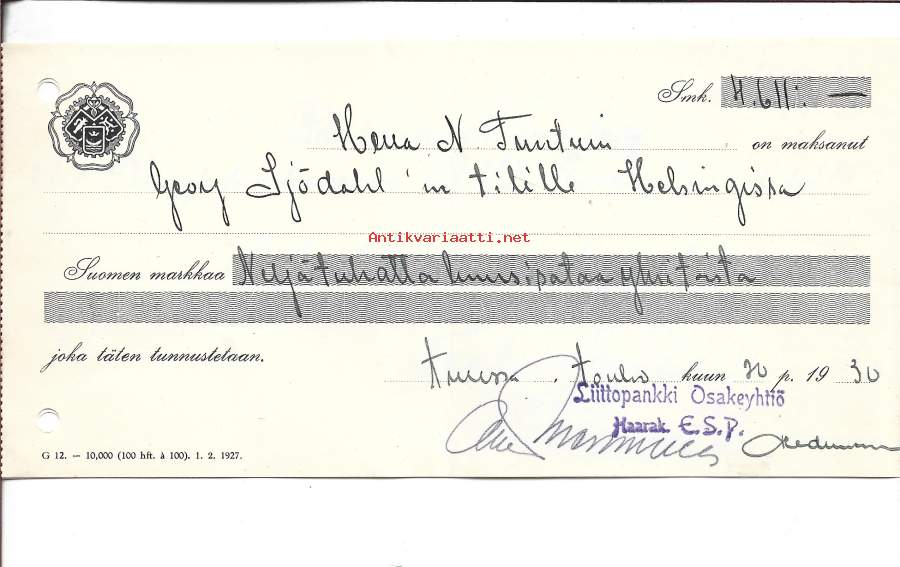 Smk. 4.611:—
Herra N. Tuntuin on maksanut
Georg Sjödahl'in tilille Helsingissa
Antikvariaatti.net
Suomen markkaa Neljätuhattakuusisataayksitoista
joka täten tunnustetaan.
Turussa, Touko kuun 20 p. 19 30
Liittopankki Osakeyhtiö
Haarak. E.S.P.
G 12. — 10,000 (100 hft. à 100). 1. 2. 1927.